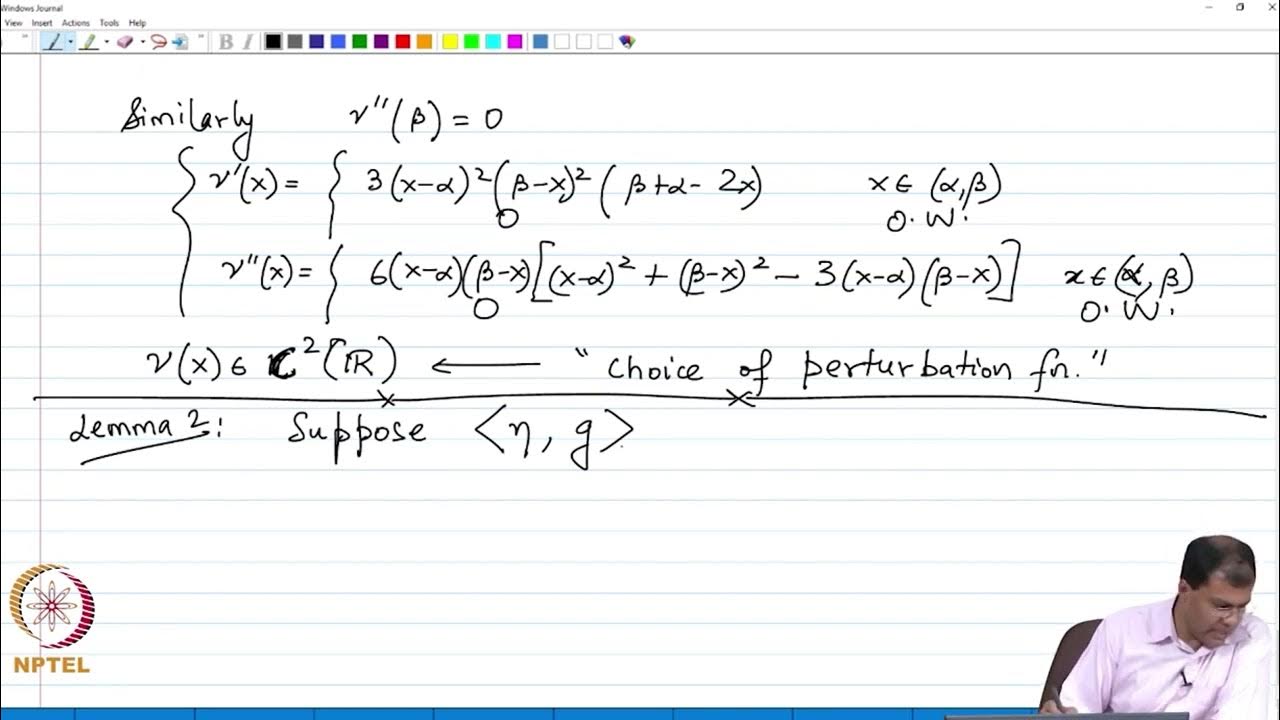 Windows Journal
View Insert Actions Tools Help
Similarly ν''(β) = 0
ν'(x) = { 3(x-α)²(β-x)²(β+α-2x) x∈(α,β)
0 O.W.
ν''(x) = { 6(x-α)(β-x)[(x-α)² + (β-x)² - 3(x-α)(β-x)] x∈(α,β)
0 O.W.
ν(x) ∈ C²(ℝ) ⟵ "choice of perturbation fn."
Lemma 2: Suppose <η, g>
NPTEL